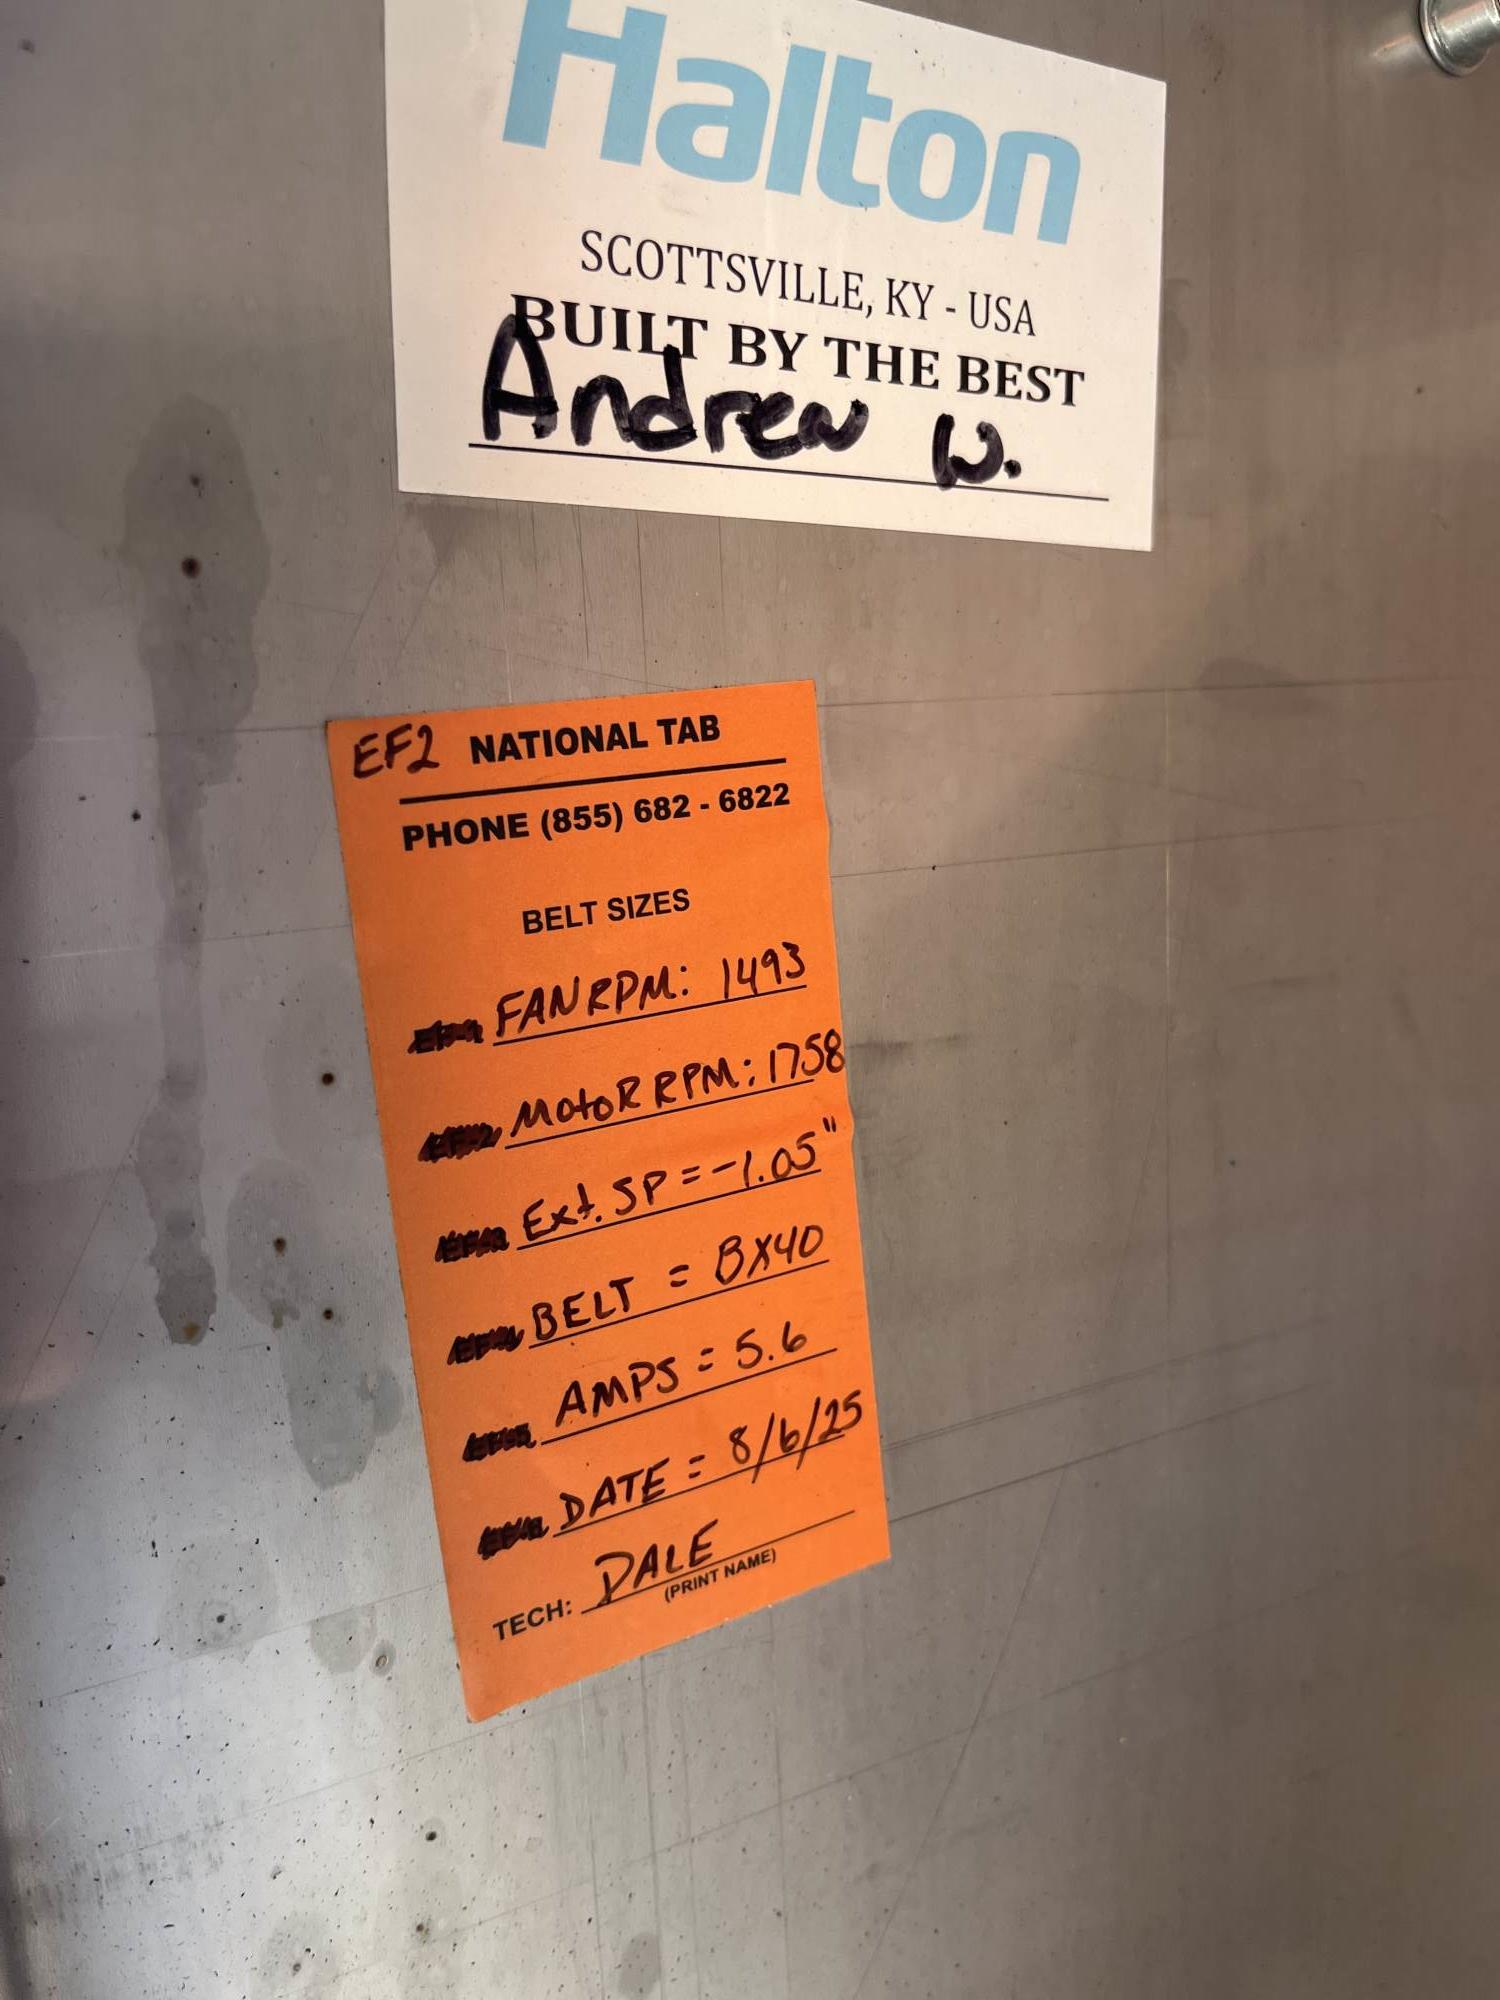 Halton
SCOTTSVILLE, KY - USA
BUILT BY THE BEST
Andrew W.
EF2 NATIONAL TAB
PHONE (855) 682 - 6822
BELT SIZES
FAN RPM: 1493
MOTOR RPM: 1758
Ext. SP = -1.05"
BELT = BX40
AMPS = 5.6
DATE = 8/6/25
TECH: DALE
(PRINT NAME)